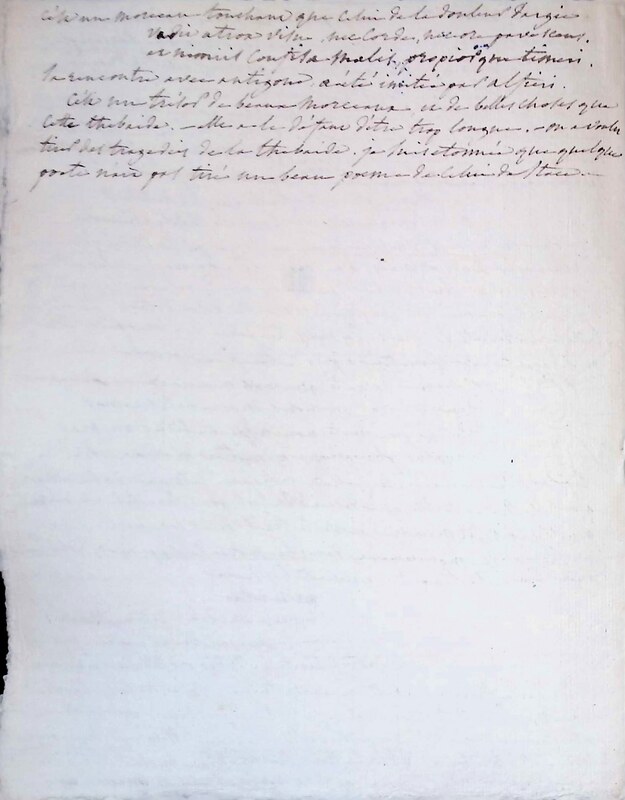 C'est un morceau touchant que celui de la douleur d'argie
vadit atrox visu, nec corde, nec ore pavescens,
et nimiis confisa malis, propiorque timeri.
la rencontre avec antigone, a été imitée par l'alfieri.
C'est un trésor de beaux morceaux et de belles choses que
cette thebaïde. - elle a le défaut d'être trop longue. - on a voulu
tirer des tragedies de la thebaide. je suis etonnée que quelque
poete n'ait pas tiré un beau poeme de celui de Stace. -